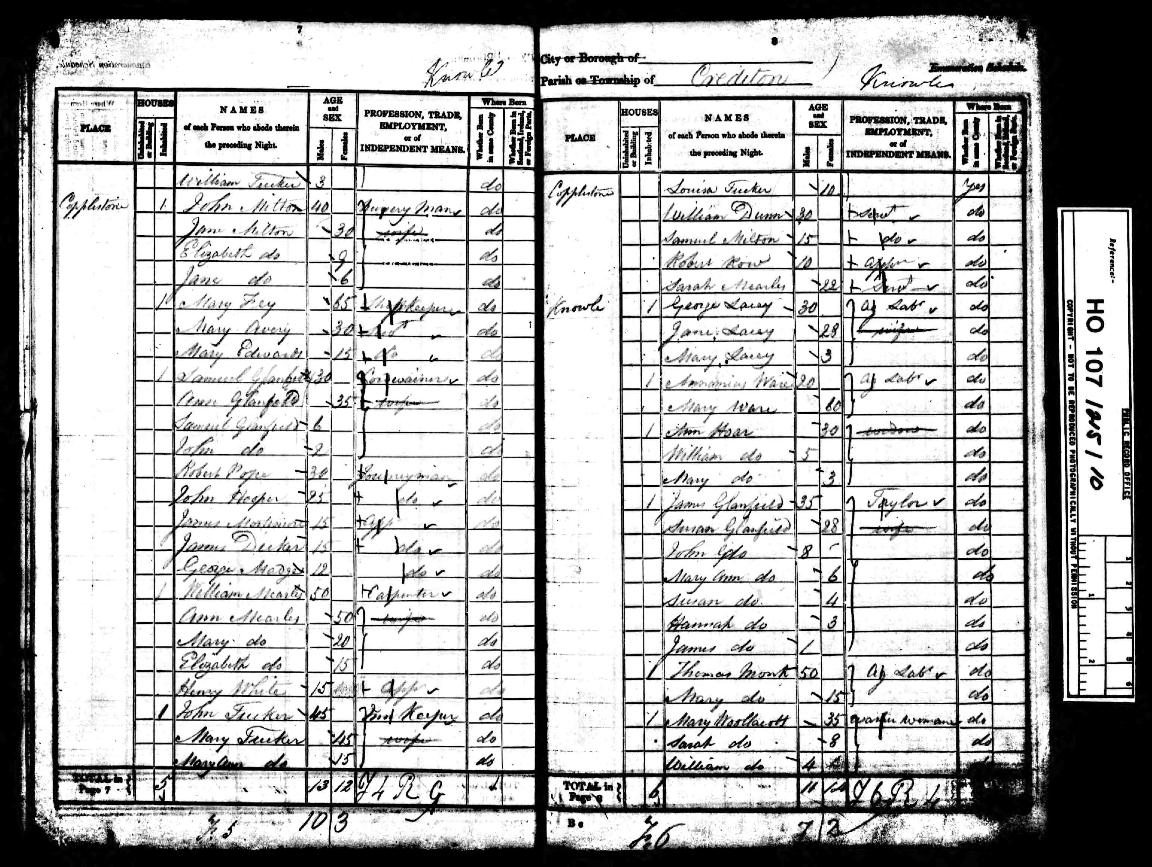 7
Parish or Township of
PLACE
HOUSES
Uninhabited or Building
Inhabited
NAMES
of each Person who abode therein
the preceding Night.
AGE
and
SEX
Males
Females
PROFESSION, TRADE,
EMPLOYMENT,
or of
INDEPENDENT MEANS.
Where Born
Whether Born in same County
Whether Born in Scotland, Ireland, or Foreign Parts.
William Tucker 3 do
Copplestone 1 John Milton 40 do
Jane Milton 30 wife do
Elizabeth do 9 do
Jane do 6 do
1 Mary Fey 65 do
Mary Avery 30 do
Mary Edwards 15 do do
1 Samuel Glanfield 30 Cordwainer do
Ann Glanfield 35 wife do
Samuel Glanfield 6 do
John do 2 do
Robert Pope 30 Journeyman do
John Hosper 25 do do
James Mortimore 15 app do
James Decker 15 do do
George Madge 12 do do
1 William Mearles 50 Carpenter do
Ann Mearles 50 wife do
Mary do 20 do
Elizabeth do 15 do
Henry White 15 app do
1 John Tucker 45 Inn Keeper do
Mary Tucker 45 wife do
Mary Ann do 15 do
TOTAL in Page 7 5 13 12
10 3
8
City or Borough of
Parish or Township of Crediton Knowle
Enumeration Schedule.
PLACE
HOUSES
Uninhabited or Building
Inhabited
NAMES
of each Person who abode therein
the preceding Night.
AGE
and
SEX
Males
Females
PROFESSION, TRADE,
EMPLOYMENT,
or of
INDEPENDENT MEANS.
Where Born
Whether Born in same County
Whether Born in Scotland, Ireland, or Foreign Parts.
Copplestone Louisa Tucker 10 Yes
William Dunn 30 Servt do
Samuel Milton 15 do do
Robert Row 10 do
Sarah Mearles 22 Servt do
Knowle 1 George Lacey 30 Ag Labr do
Jane Lacey 28 wife do
Mary Lacey 3 do
1 Annanias Ware 20 Ag Labr do
Mary Ware 60 do
1 Ann Hoar 30 do
William do 5 do
Mary do 3 do
1 James Glanfield 35 Taylor do
Susan Glanfield 28 wife do
John Gdo 8 do
Mary Ann do 6 do
Susan do 4 do
Hannah do 3 do
James do 1 do
1 Thomas Monk 50 Ag Labr do
Mary do 15 do
1 Mary Woollacott 35 do
Sarah do 8 do
William do 4 do
TOTAL in Page 8 6 11 14
7 2
Reference:-
HO 107
COPYRIGHT - NOT TO BE REPRODUCED PHOTOGRAPHICALLY WITHOUT PERMISSION
PUBLIC RECORD OFFICE